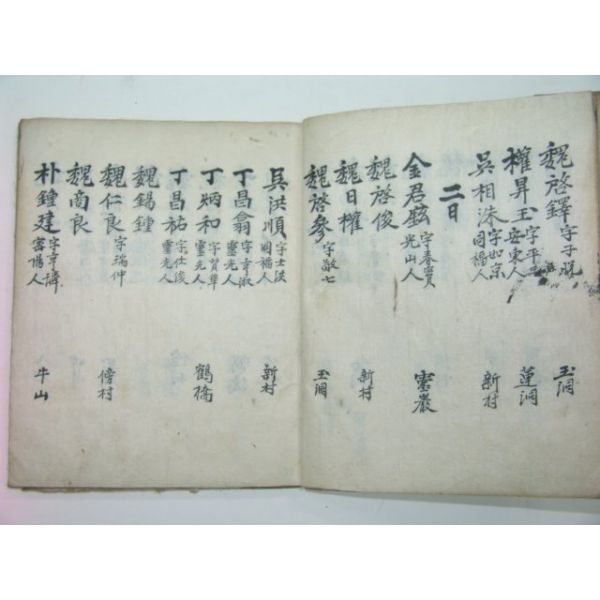 魏啓鐸 字子 玉洞
權昇玉 字平 安東人 蓮洞
吳相洙 字如宗 同福人 新村
二日
金君鉉 字春實 光山人 靈巖
魏啓俊
魏日權 新村
魏啓參 字敬七 玉洞
吳洪順 字士 同福人 新村
丁昌翕 字幸淑 靈光人
丁炳和 字賀準 靈光人 鶴橋
丁昌祐 字仕俊 靈光人
魏錫鍾
魏仁良 字瑞仲 傍村
魏商良
朴鍾建 人 牛山